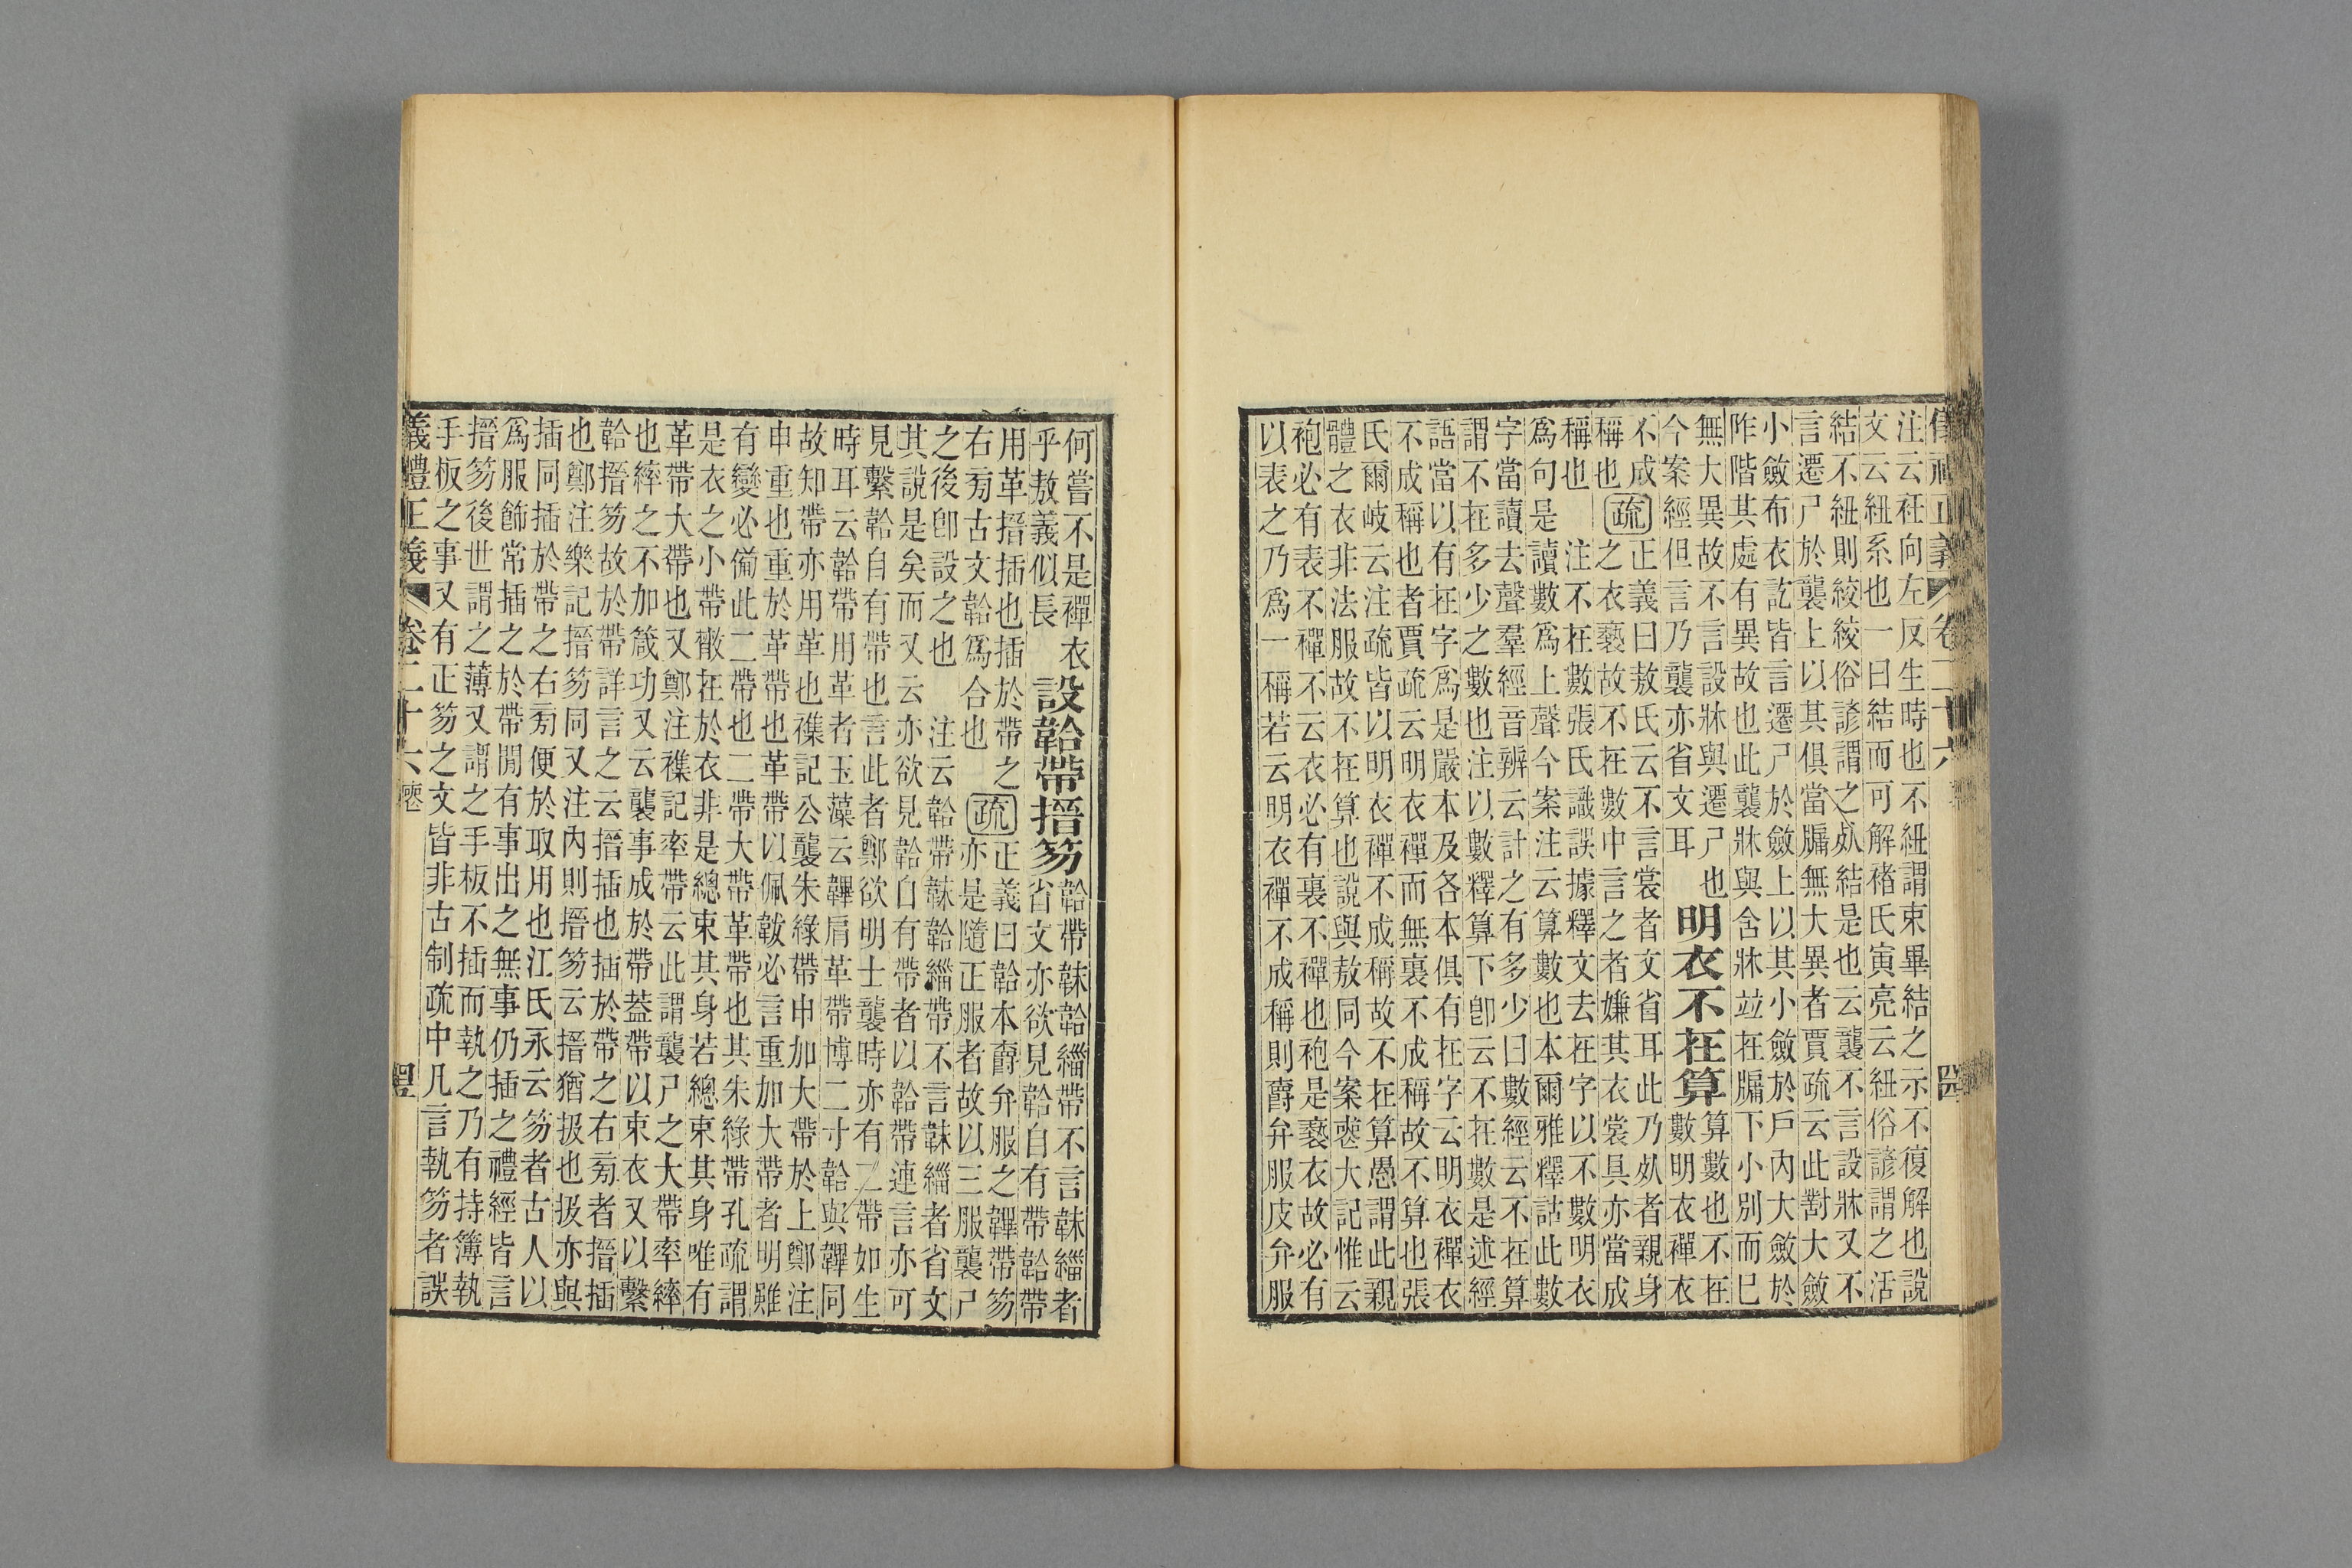 儀禮正義 卷二十六
注云衽向左反生時也不紐謂束畢結之示不復解也說
文云紐系也一曰結而可解褚氏寅亮云紐俗諺謂之活
結不紐則絞絞俗諺謂之㱾結是也云襲不言設牀又不
言遷尸於襲上以其俱當牖無大異者賈疏云此對大斂
小斂布衣訖皆言遷尸於斂上以其小斂於戶內大斂於
阼階其處有異故也此襲牀與含牀竝在牖下小別而已
無大異故不言設牀與遷尸也
今案經但言乃襲亦省文耳
明衣不在算
算數也不在
數明衣襌衣
不成
稱也
疏
正義曰敖氏云不言裳者文省耳此乃㱾者親身
之衣褻故不在數中言之者嫌其衣裳具亦當成
稱也 注不在數張氏識誤據釋文去在字以不數明衣
爲句是讀數爲上聲今案注云算數也本爾雅釋詁此數
字當讀去聲羣經音辨云計之有多少曰數經云不在算
謂不在多少之數也注以數釋算下卽云不在數是述經
語當以有在字爲是嚴本及各本俱有在字云明衣襌衣
不成稱也者賈疏云明衣襌而無裏不成稱故不算也張
氏爾岐云注疏皆以明衣襌不成稱故不在算愚謂此親
體之衣非法服故不在算也說與敖同今案喪大記惟云
袍必有表不襌不云衣必有裏不襌也袍是褻衣故必有
以表之乃爲一稱若云明衣襌不成稱則爵弁服皮弁服
何嘗不是襌衣
乎敖義似長
設韐帶搢笏
韐帶韎韐緇帶不言韎緇者
省文亦欲見韐自有帶韐帶
用革搢插也插於帶之
右旁古文韐爲合也
疏
正義曰韐本爵弁服之韠帶笏
亦是隨正服者故以三服襲尸
之後卽設之也 注云韐帶韎韐緇帶不言韎緇者省文
其說是矣而又云亦欲見韐自有帶者以韐帶連言亦可
見繫韐自有帶也言此者鄭欲明士襲時亦有二帶如生
時耳云韐帶用革者玉藻云韠肩革帶博二寸韐與韠同
故知帶亦用革也襍記公襲朱綠帶申加大帶於上鄭注
申重也重於革帶也革帶以佩韍必言重加大帶者明雖
有變必備此二帶也二帶大帶革帶也其朱綠帶孔疏謂
是衣之小帶㪚在於衣非是總束其身若總束其身唯有
革帶大帶也又鄭注襍記率帶云此謂襲尸之大帶率繂
也繂之不加箴功又云襲事成於帶葢帶以束衣又以繫
韐搢笏故於帶詳言之云搢插也插於帶之右旁者搢插
也鄭注樂記搢笏同又注內則搢笏云搢猶扱也扱亦與
插同插於帶之右旁便於取用也江氏永云笏者古人以
爲服飾常插之於帶閒有事出之無事仍插之禮經皆言
搢笏後世謂之薄又謂之手板不插而執之乃有持簿執
手板之事又有正笏之文皆非古制疏中凡言執笏者誤
義禮正義 卷二十六 喪